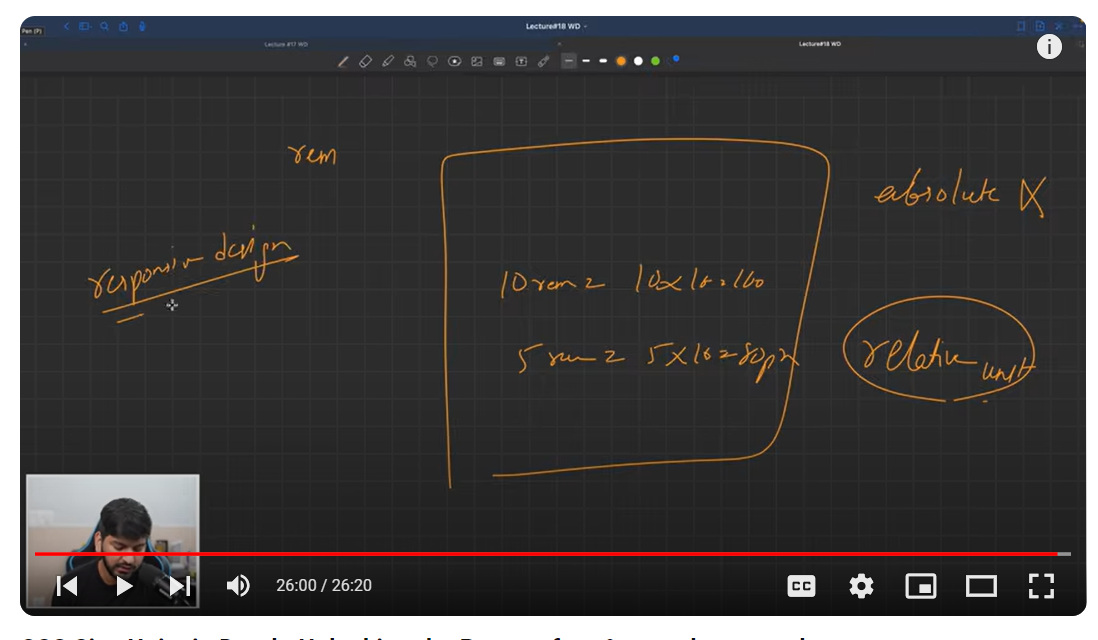 Pen (P)
Lecture#18 WD
Lecture #17 WD
Lecture#18 WD
i
rem
absolute X
responsive design
10 rem = 10x16=160
5 rem = 5x16=80px
relative unit
26:00 / 26:20
CC